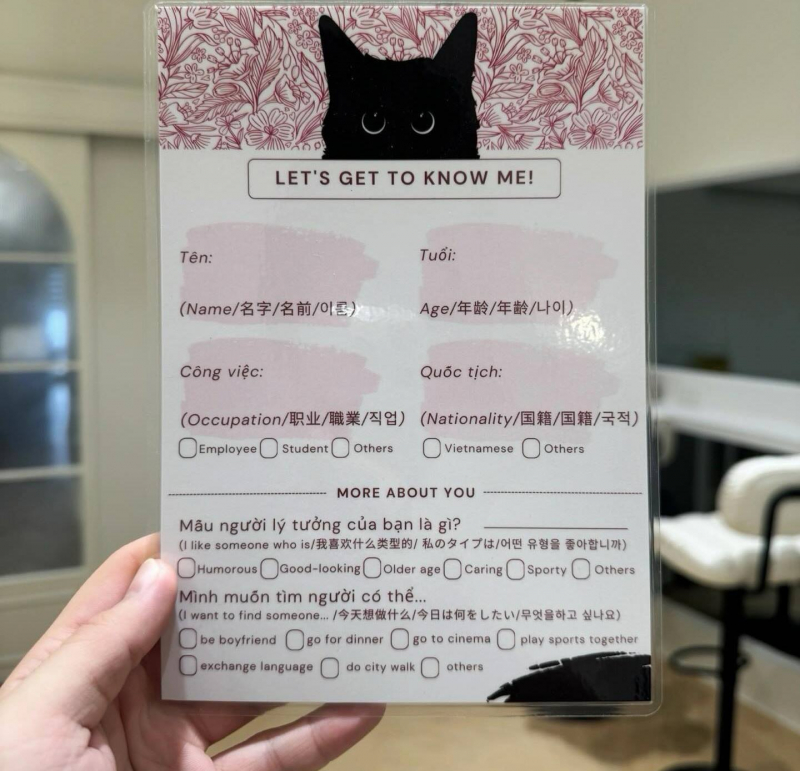 LET'S GET TO KNOW ME!
Tên:
Tuổi:
(Name/名字/名前/이름)
Age/年龄/年齢/나이)
Công việc:
Quốc tịch:
(Occupation/职业/職業/직업)
(Nationality/国籍/国籍/국적)
Employee Student Others
Vietnamese Others
MORE ABOUT YOU
Mẫu người lý tưởng của bạn là gì?
(I like someone who is/我喜欢什么类型的/ 私のタイプは/어떤 유형을 좋아합니까)
Humorous Good-looking Older age Caring Sporty Others
Mình muốn tìm người có thể...
(I want to find someone... /今天想做什么/今日は何をしたい/무엇을하고 싶나요)
be boyfriend go for dinner go to cinema play sports together
exchange language do city walk others